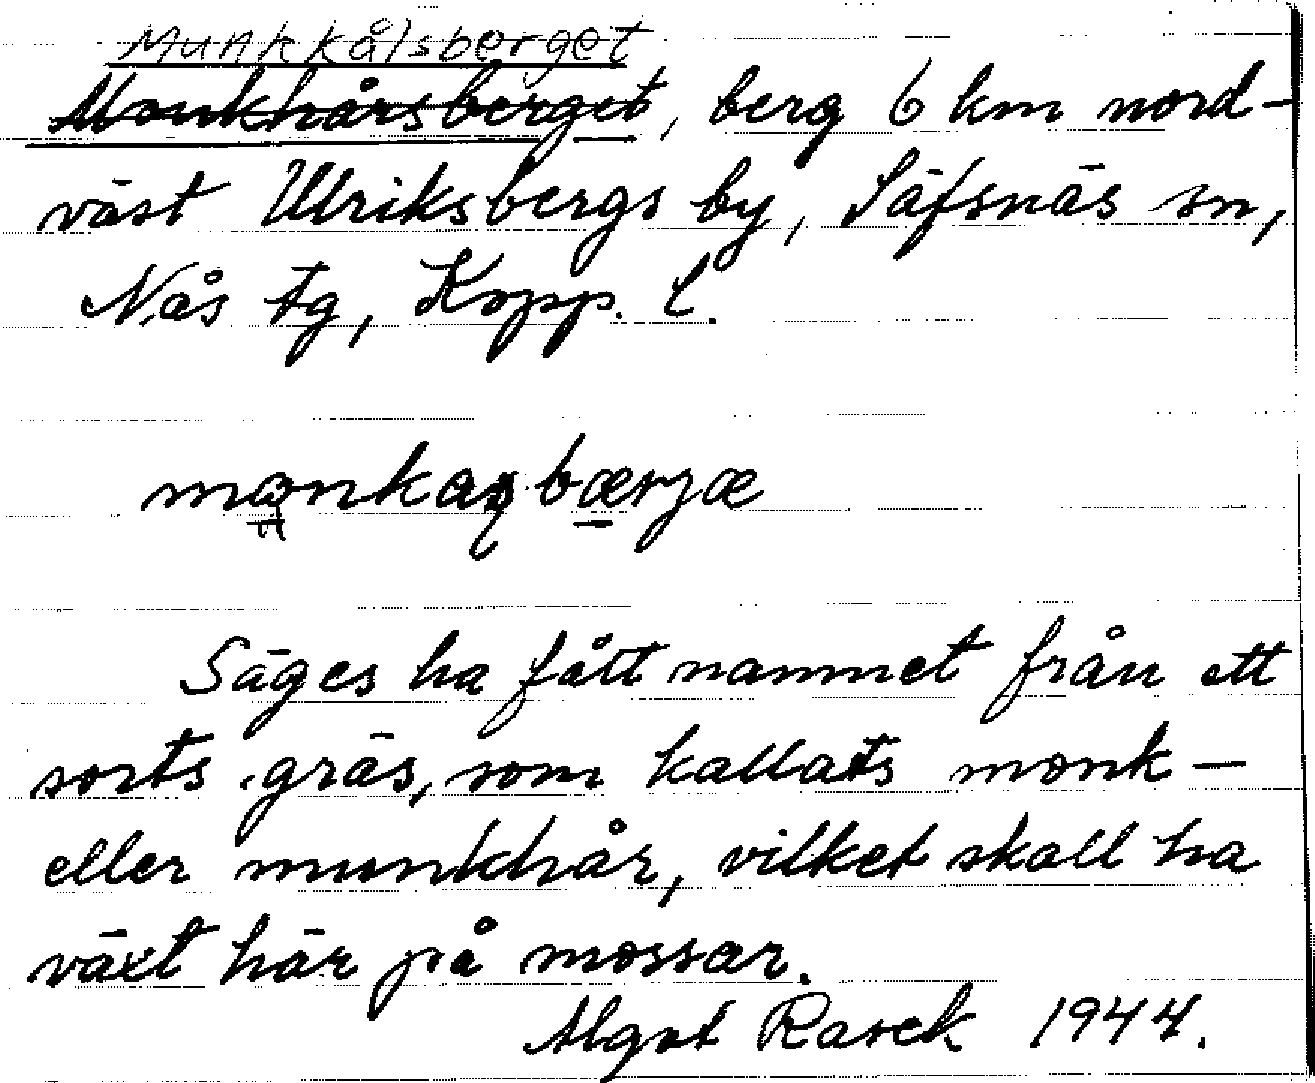 Munkkålsberget
Monkhårsberget, berg 6 km nord-
väst Ulriksbergs by, Säfsnäs sn,
Nås tg, Kopp. l.
Säges ha fått namnet från ett
sorts gräs, som kallats monk-
eller munkhår, vilket skall ha
växt här på mossar.
Algot 1944.